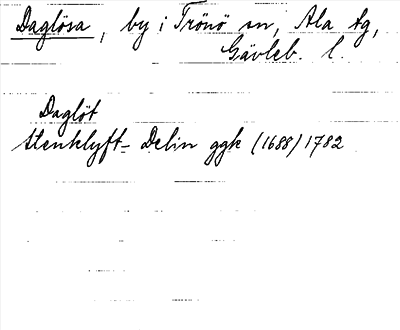 Daglösa, by i Trönö sn, Ala tg,
Gävleb. l.
Daglöt
Stenklyft- Delin ggk (1688) 1782